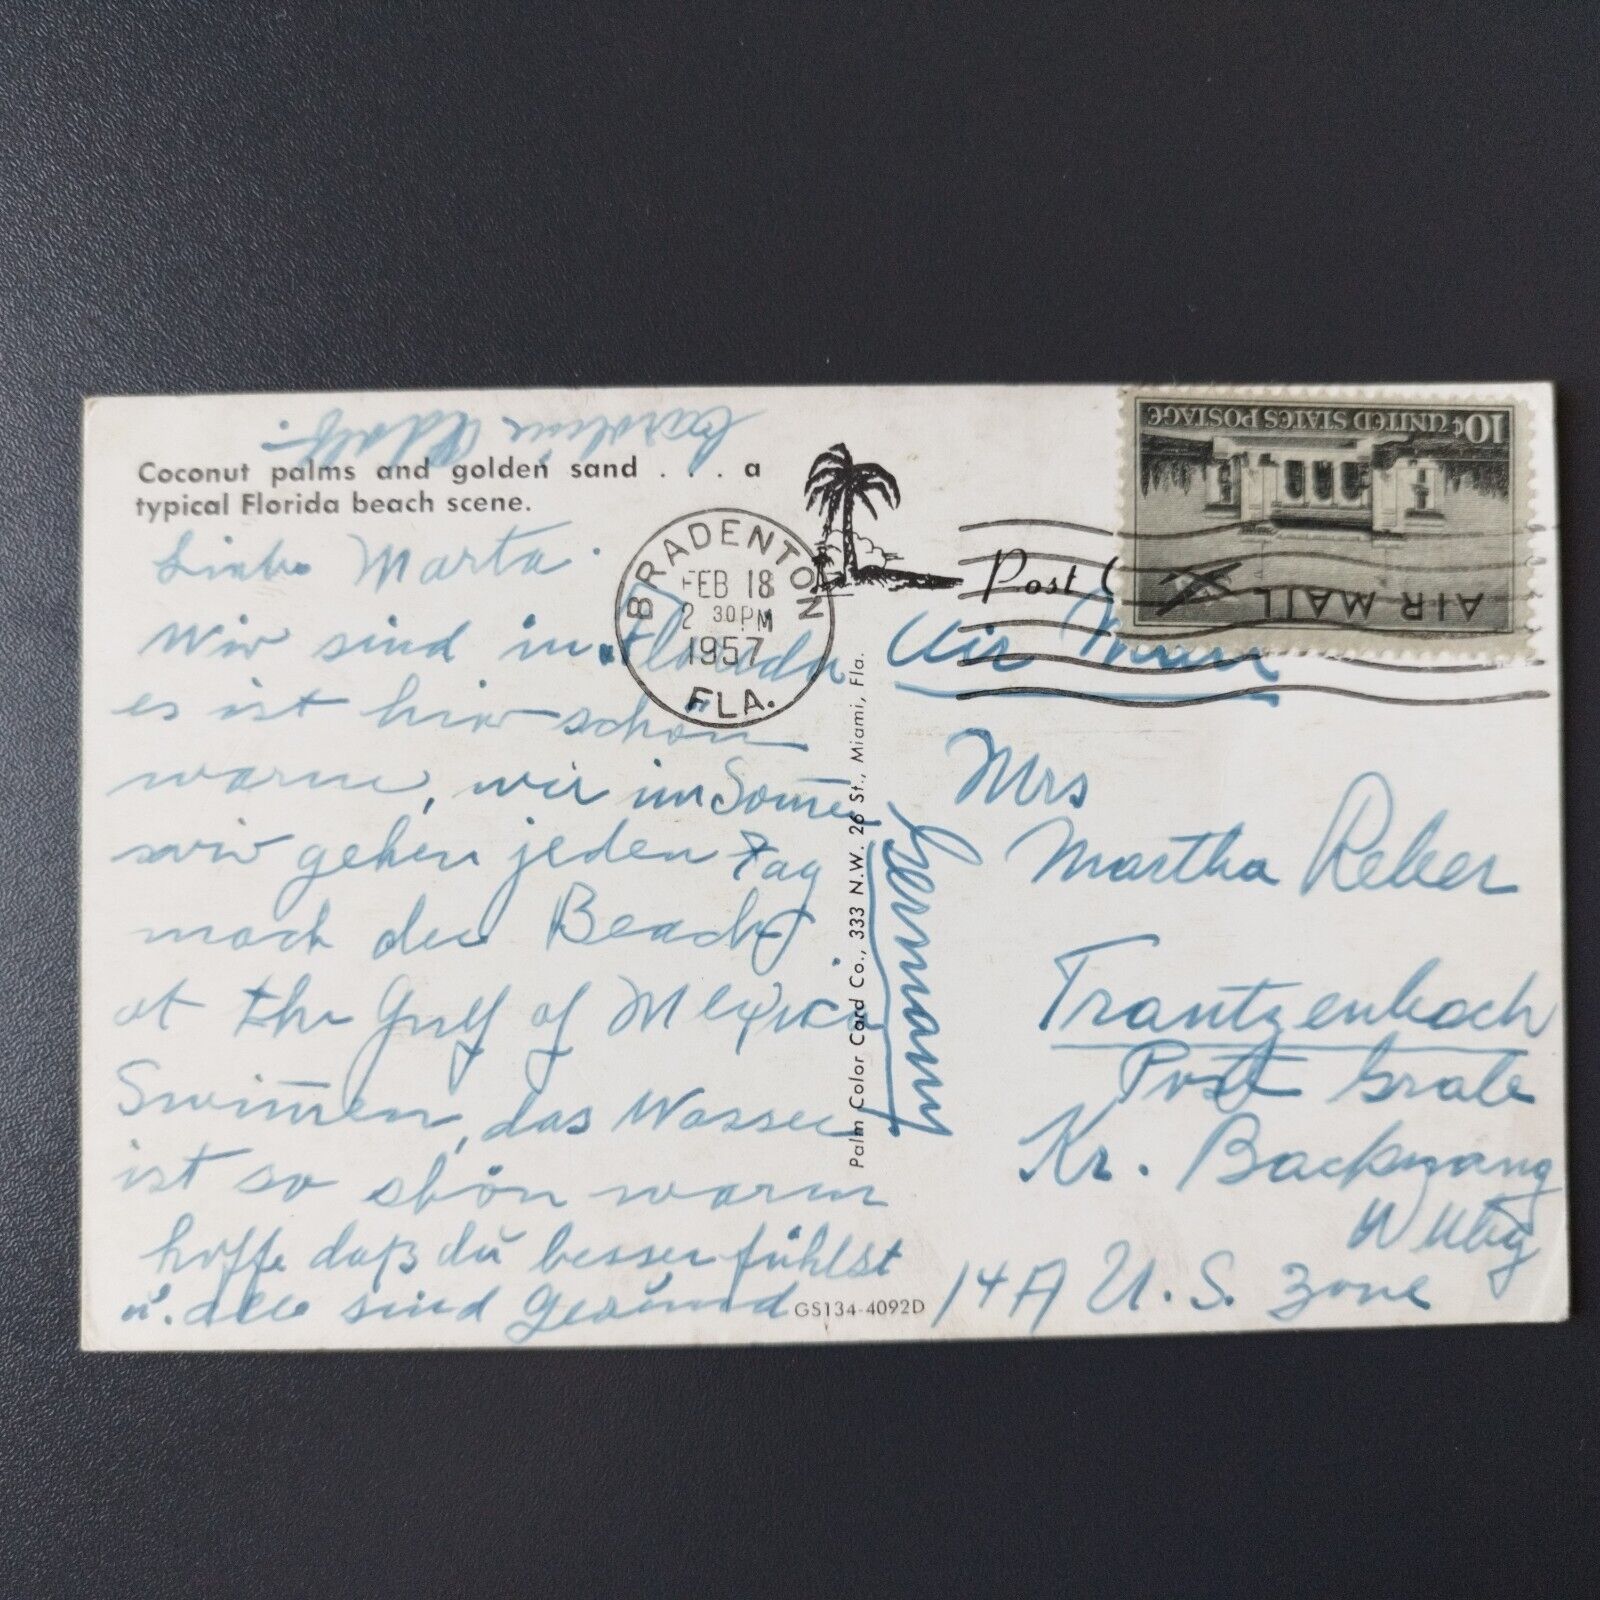 Caroline Adolf.
Coconut palms and golden sand . . . a
typical Florida beach scene.
Liebe Marta.
Wir sind in Florida
es ist hier schön
warm, wie im Som̅er
wir gehen jeden Tag
nach der Beach
at the Gulf of Mexico
Swim̅en, das Wasser
ist so schön warm
hoffe daß du besser fühlst
u. alle sind Gesund
GS134-4092D
BRADENTON
FEB 18
2 30 PM
1957
FLA.
Palm Color Card Co., 333 N.W. 26 St., Miami, Fla.
Post C
10¢ UNITED STATES POSTAGE
AIR MAIL
Air
Mrs
Martha Reber
Trautzenbach
Post Grab
Kr. Backnang
Wttbg
14A U.S. Zone
Germany